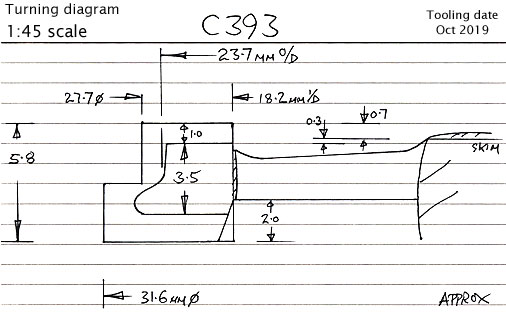 Turning diagram
1:45 scale
C393
Tooling date
Oct 2019
23.7 MM O/D
27.7 ø
18.2 MM I/D
0.3
0.7
1.0
SKIM
5.8
3.5
2.0
31.6 MM ø
APPROX